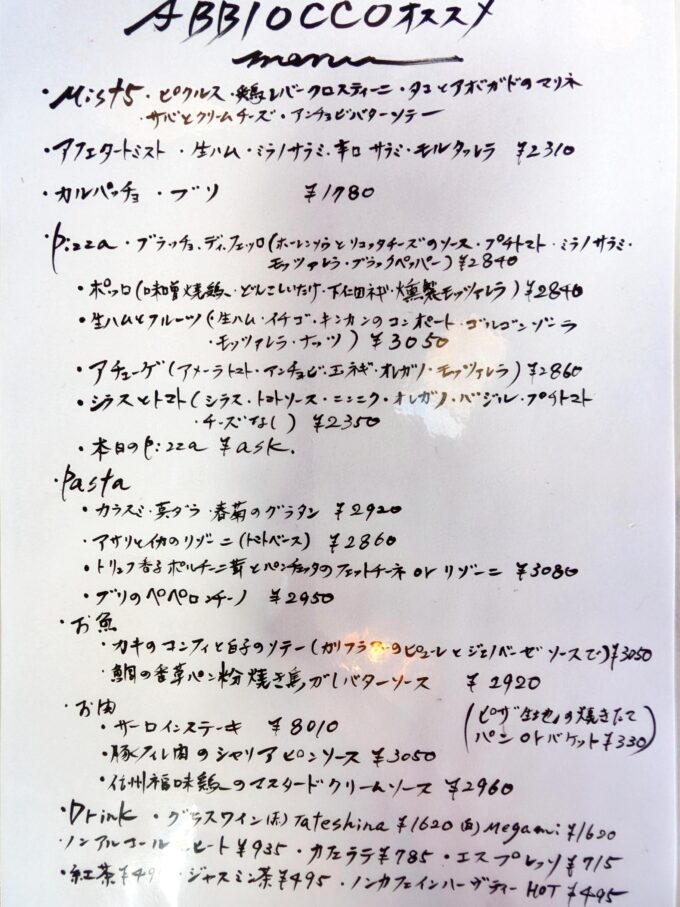 ABBIOCCOオススメ
menu
・Mist5・ピクルス・鶏レバークロスティーニ・タコとアボガドのマリネ
・サバとクリームチーズ・アンチョビバターソテー
・アフェタートミスト・生ハム・ミラノサラミ・辛口サラミ・モルタッレラ ¥2310
・カルパッチョ・ブリ ¥1780
・Pizza・ブラッチョ.ディ.フェッロ(ホーレンソウとリコッタチーズのソース・プチトマト・ミラノサラミ・
モッツァレラ・ブラックペッパー)¥2840
・ポッロ(味噌焼鶏・どんこしいたけ・下仁田ネギ・燻製モッツァレラ)¥2840
・生ハムとフルーツ(・生ハム・イチゴ・キンカンのコンポート・ゴルゴンゾーラ
・モッツァレラ・ナッツ)¥3050
・アチューゲ(アメーラトマト・アンチョビ・エネギ・オレガノ・モッツァレラ)¥2860
・シラスとトマト(シラス・トマトソース・ニンニク・オレガノ・バジル・プチトマト
・チーズなし)¥2350
・本日のPizza ¥ask.
・Pasta
・カラスミ・真ダラ・春菊のグラタン ¥2920
・アサリとイカのリゾーニ(トマトベース)¥2860
・トリュフ香るポルチーニ茸とパンチェッタのフェットチーネ or リゾーニ ¥3080
・ブリのペペロンチーノ ¥2950
・お魚
・カキのコンフィと白子のソテー(カリフラワーのピューレとジェノベーゼソースで)¥3050
・鯛の香草パン粉焼き焦がしバターソース ¥2920
・お肉
・サーロインステーキ ¥8010
(ピザ生地の焼きたて
パン orバケット¥330)
・豚ヒレ肉のシャリアピンソース ¥3050
・信州福味鶏のマスタードクリームソース ¥2960
・Drink・グラスワイン(赤)Tateshina ¥1620 (白)Megami ¥1620
・ノンアルコールビート¥935・カフェラテ¥785・エスプレッソ¥715
・紅茶¥495・ジャスミン茶¥495・ノンカフェインハーブティーHOT ¥495